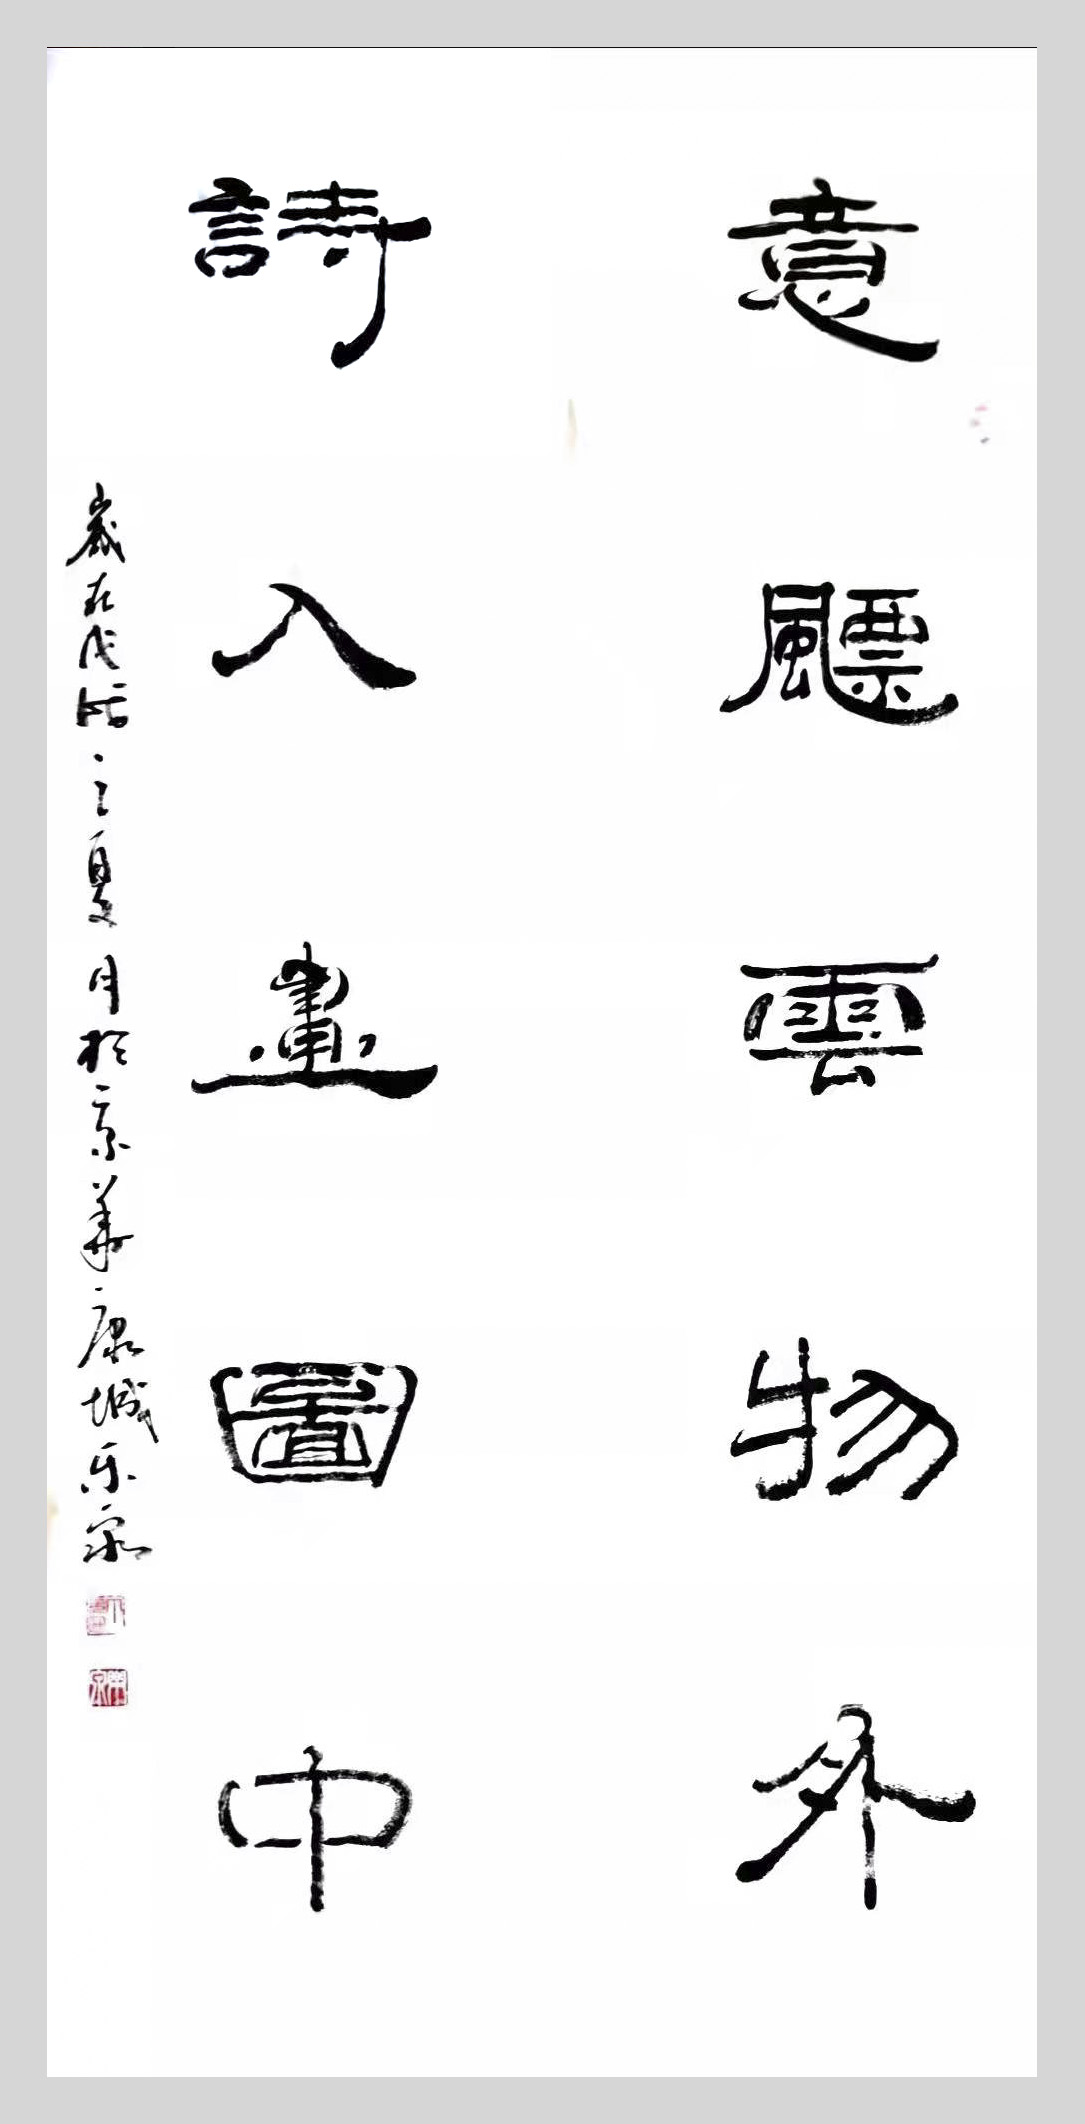 意飄雲物外
詩入畫圖中
歲在戊戌之夏月於京華康城乐泉